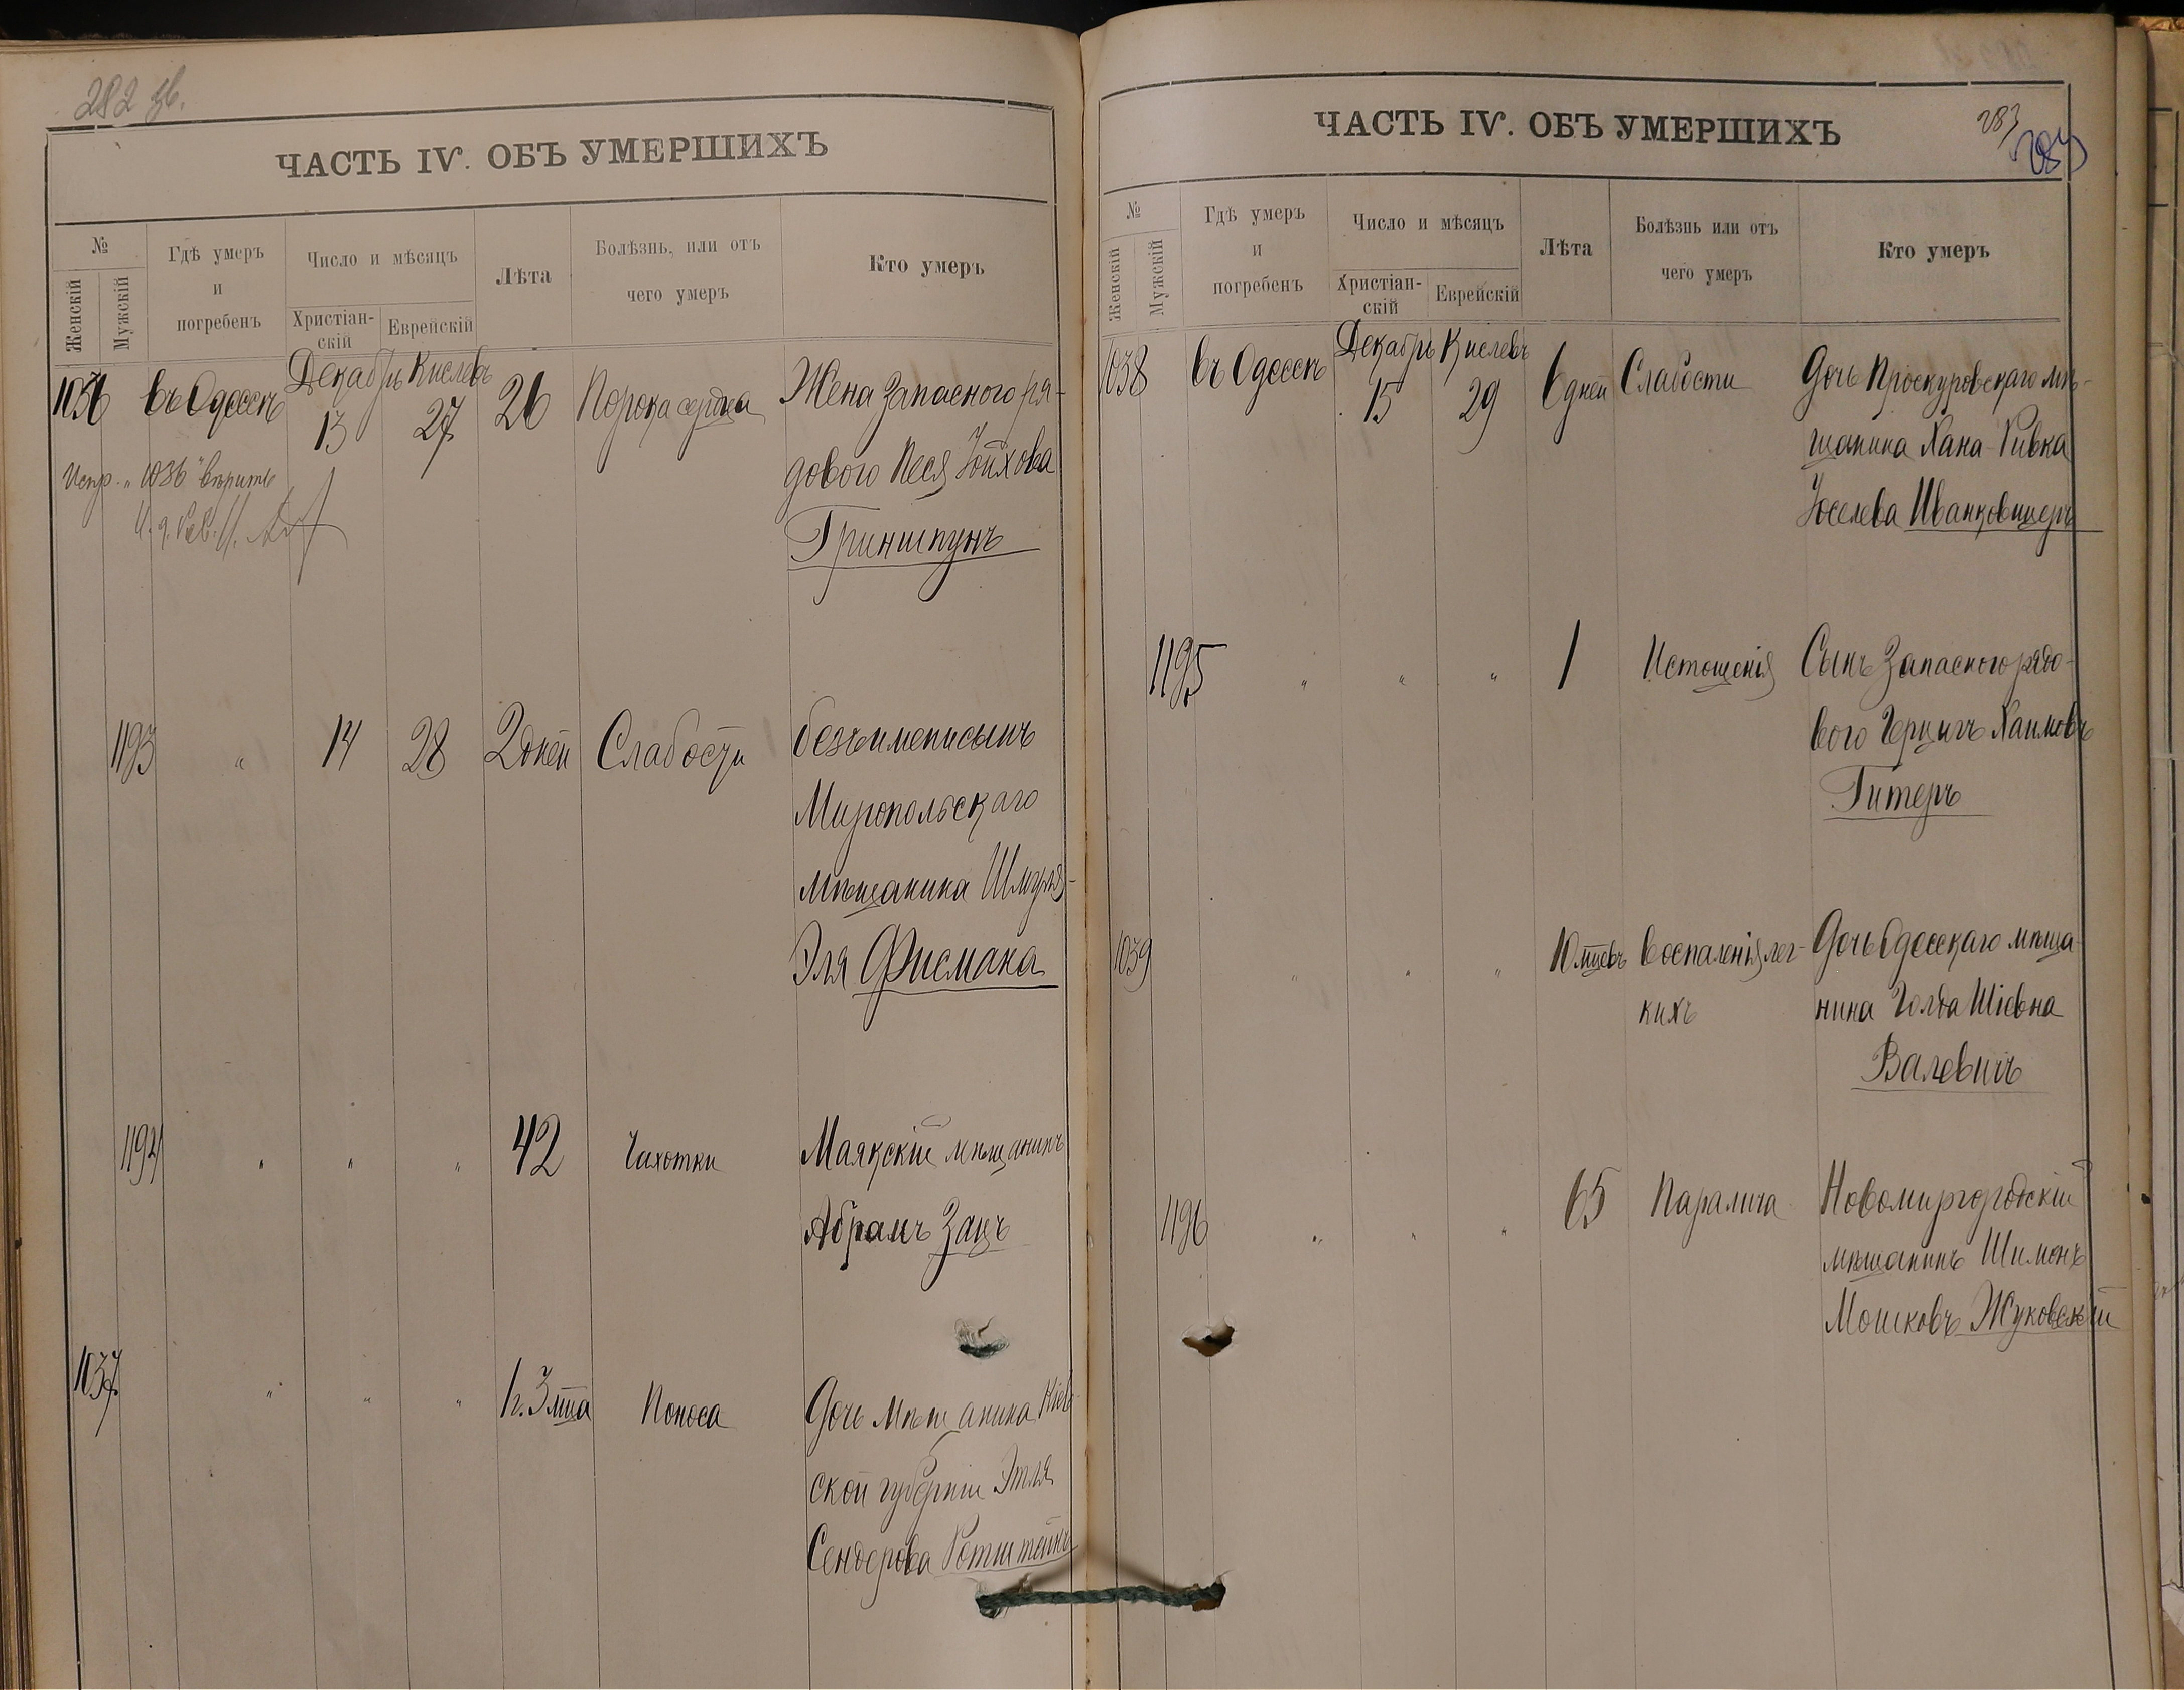 282 зв.
ЧАСТЬ IV. ОБЪ УМЕРШИХЪ
№
Женскій
Мужскій
Гдѣ умеръ
и
погребенъ
Число и мѣсяцъ
Христіан-
скій
Еврейскій
Лѣта
Болѣзнь, или отъ
чего умеръ
Кто умеръ
1036 въ Одессѣ Декабрь 13 Кислевъ 27 26 Порока сердца Жена Запасного ря-
дового Песя Іойхова
Гриншпунъ
Испр. „1036" вѣрить
1193 " 14 28 2 дней Слабости безъ имени сынъ
Миропольскаго
мѣщанина Шмуля-
Эля Фисмана
1194 " " " 42 Чахотки Маякскій мѣщанинъ
Абрамъ Зацъ
1037 " " " 1 г. 3 мца Поноса Дочь мѣщанина Кіев-
ской губерніи Этля
Сендерова Ротштейнъ
283
283
ЧАСТЬ IV. ОБЪ УМЕРШИХЪ
№
Женскій
Мужскій
Гдѣ умеръ
и
погребенъ
Число и мѣсяцъ
Христіан-
скій
Еврейскій
Лѣта
Болѣзнь или отъ
чего умеръ
Кто умеръ
1038 въ Одессѣ Декабрь 15 Кислевъ 29 6 дней Слабости Дочь Проскуровскаго мѣ-
щанина Хана-Ривка
Іоселева Иванковицеръ
1195 " " " 1 Истощенія Сынъ Запасного рядо-
вого Герцигъ Хаимовъ
Гитеръ
1039 " " " 10 мцевъ воспаленія лег- Дочь Одесскаго мѣща-
кихъ нина Голда Шіевна
Валевичъ
1196 " " " 65 Паралича Новомиргородскій
мѣщанинъ Шимонъ
Мошковъ Жуковскій